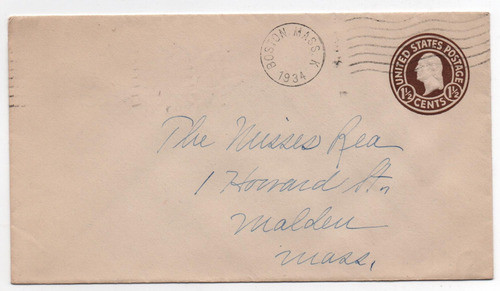 BOSTON, MASS. K
1934
UNITED STATES POSTAGE
1½ CENTS 1½
The Misses Rea
1 Howard St.
Malden
Mass.